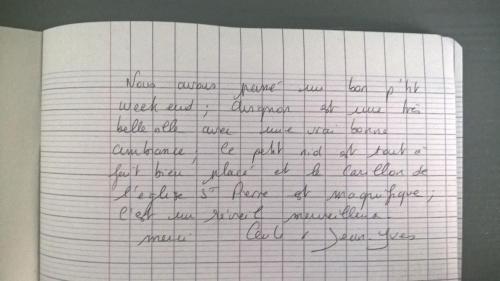 Nous avons passé un bon p'tit
week end; Avignon est une très
belle ville avec une vrai bonne
ambiance; Ce petit nid est tout à
fait bien placé et le carillon de
l'église St Pierre est magnifique;
c'est un réveil merveilleux.
merci Jean-Yves